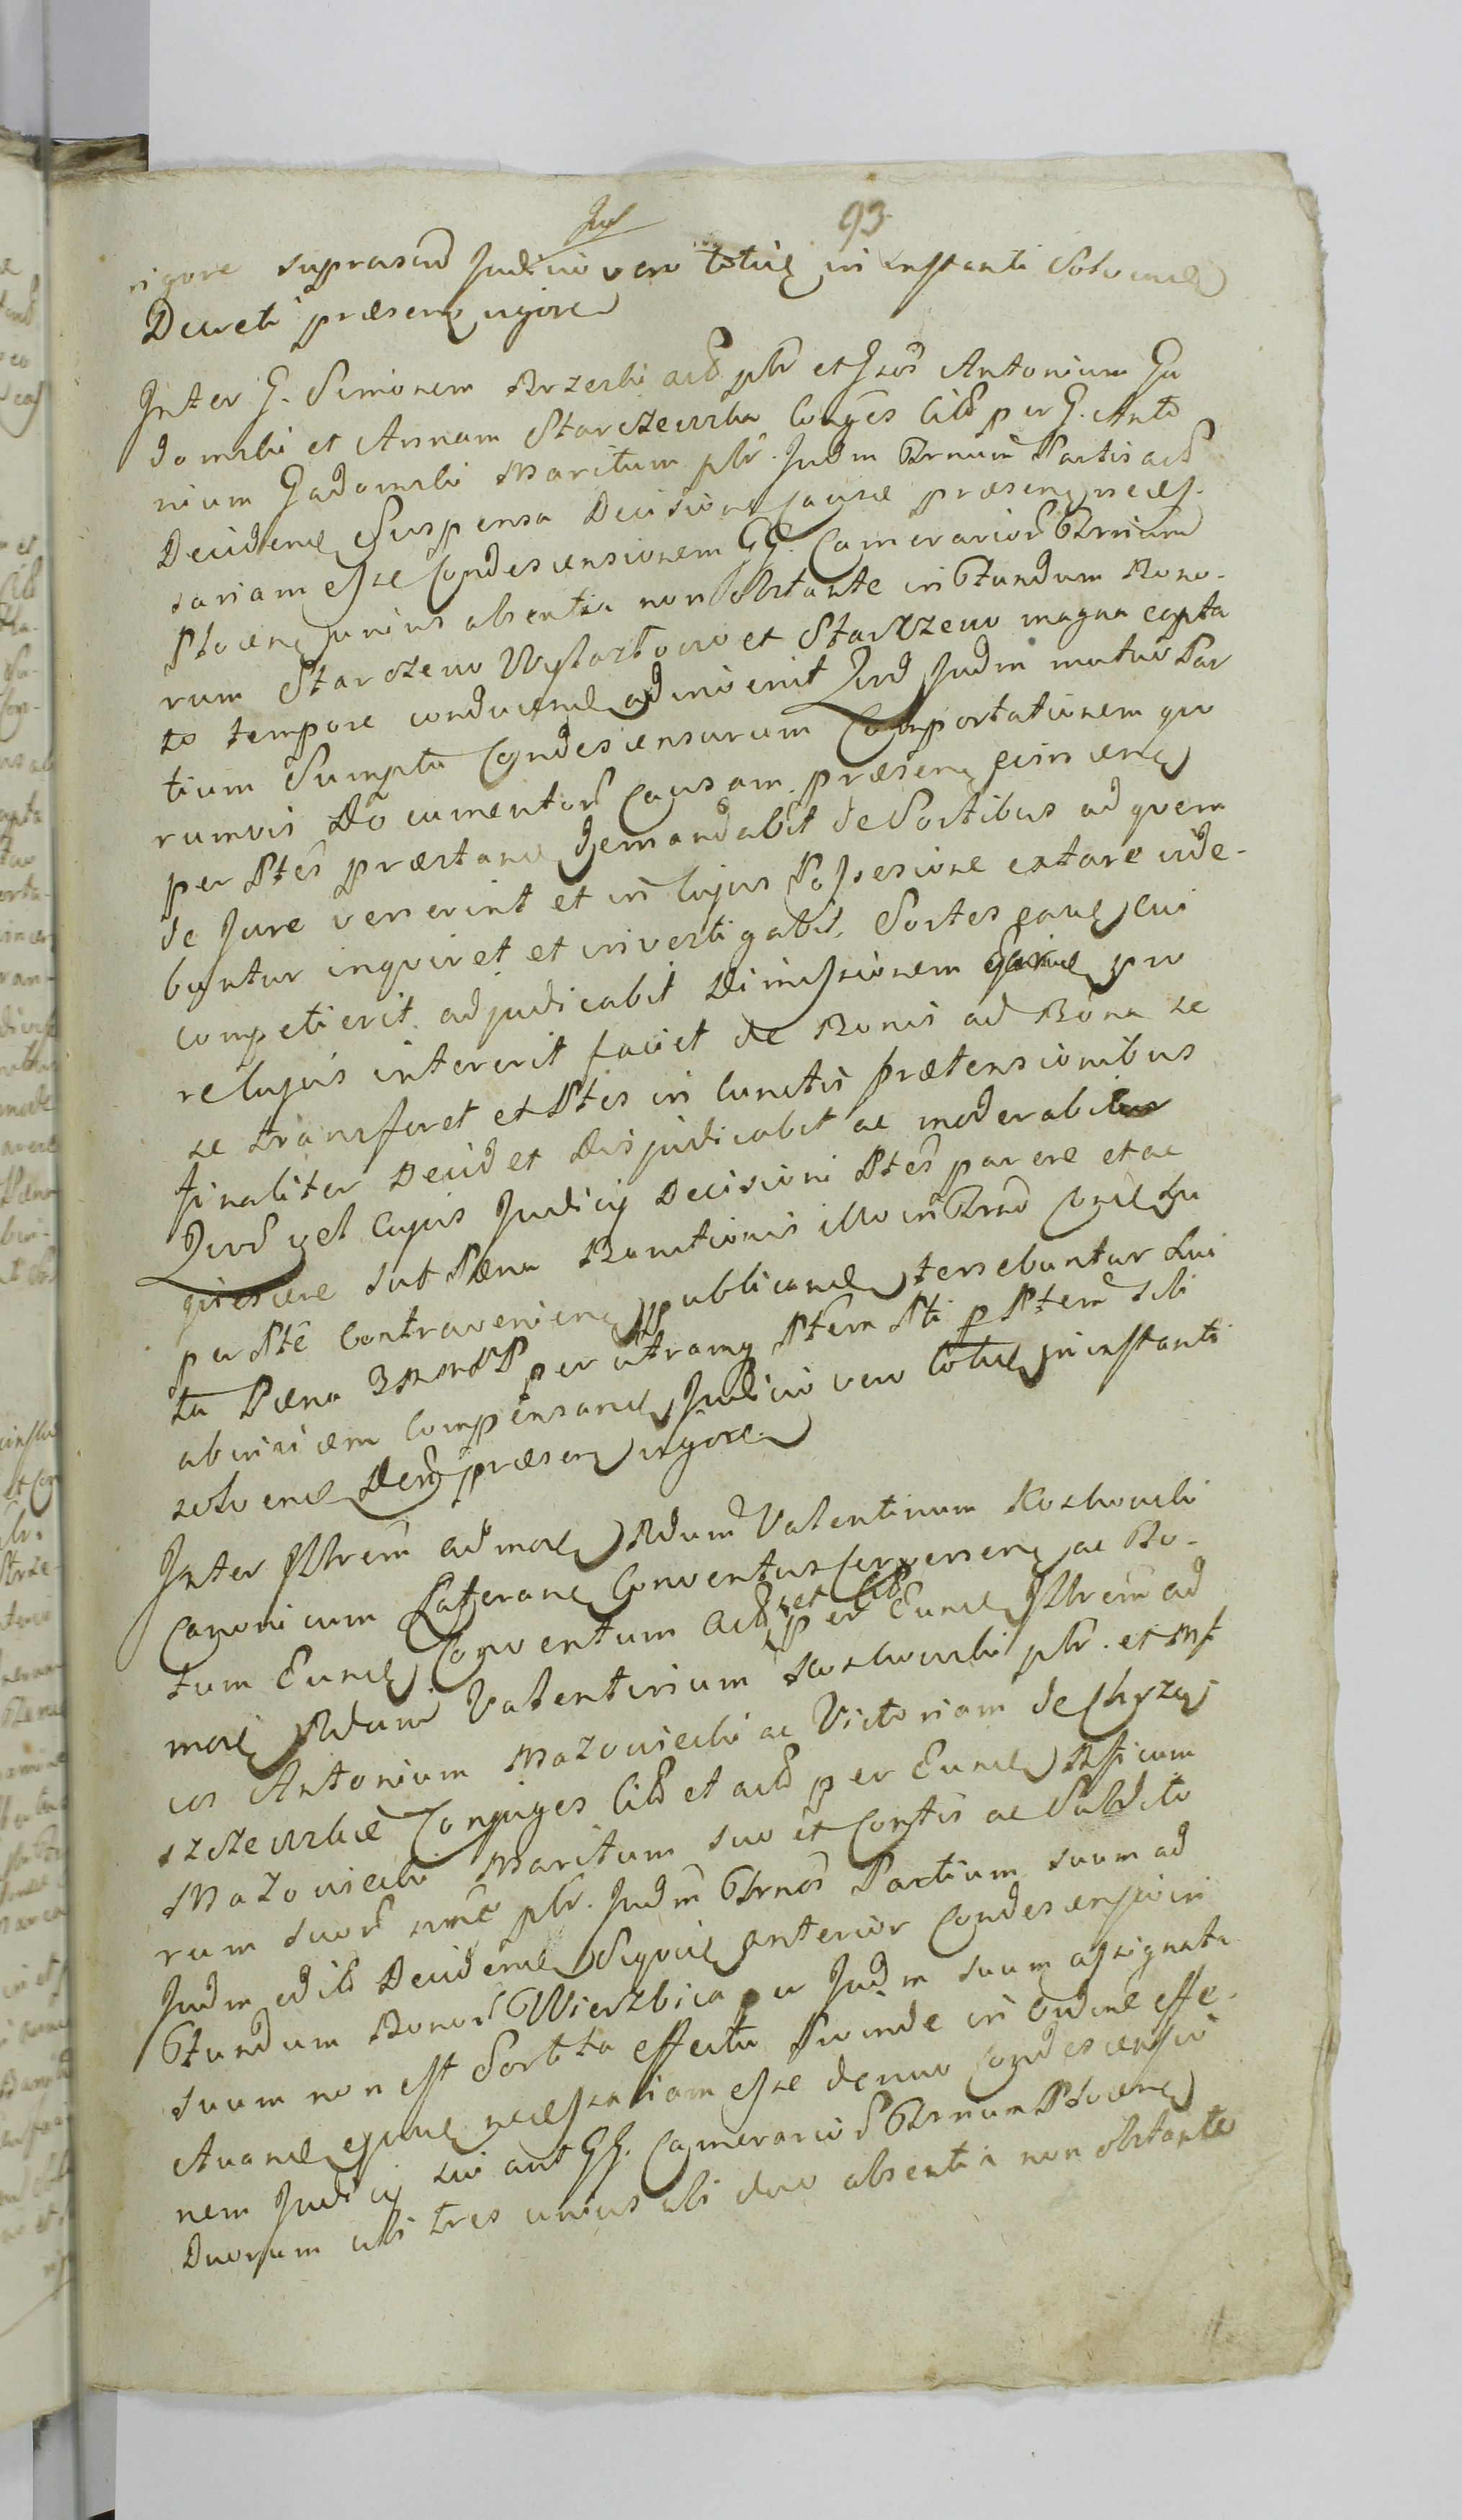 93
rigore suprascr Judicio vero totid in instanti Solvend
Decreti præsen vigore
Inter G. Simonem Brzeski actO ptbr et Gsos Antonium Ga
domski et Annam Starczewska Conjges CitO per G. Anto
nium Gadomski Maritum ptbr. Judm Trnum Partis actO
Decidend Suspensa Decisione Causæ præsen necess-
sariam esse Condescensionem GG. Camerarior Trriam
Plocen unius absentia non obstante in Fundum Bono-
rum Starczewo Wyłazłowo et Starczewo magna capta
to tempore conducend adinvenit Quod Judm mutuo Par
tium Sumptu Condescensurum Comportationem quo
rumvis Documentor Causam præsen concernen
per Ptes præstand demandabit de Sortibus ad quem
de Jure venerint et in cujus Possesione extare vide-
buntur inquiret et investigabit. Sortes easd cui
competierit adjudicabit Dimissionem earund pro
re cujus intererit faciet de Bonis ad Bona se
se transferet et Ptes in cunctis prætensionibus
finaliter Decidet Disjudicabit ac moderabitur
Quod vel cujus Judicij Decisioni Ptes parere et ac
quiescere sub Pæna Banitionis illico in Trno Cond su
per Pte Contravenien publicand tenebuntur Lui
ta Pæna 3 M M P P per utramq Ptem Pti p Ptem sibi
abinvicem Compensand Judicio vero totid in instanti
solvend Decr præsen vigore
Inter Illrem admod Rdum Valentinum Koskowski
Canonicum Lateranen Conventus Czerwensen ac to-
tum Eund Conventum act et Cit per Eund Illrem ad
mod Rdum Valentinum Koskowski ptbr. et Mf
cos Antonium Mazowiecki ac Victoriam de Chrzaş
szczewskie Conjuges CitO et actO per Eund Mficum
Mazowiecki Maritum suo et Contis ac Subdito
rum suor nmē ptbr. Judm Trnos Partium suum ad
Judm edito Decidend Siquid anterior Condescensio in
Fundum Bonor Wierzbica per Judm suum assignata
suum non est Sortita effectu Proinde in ordine effe-
ctuand ejusd necessariam esse denuo Condescensio
nem Judicij sui aut GG. Camerarior Trnum Plocen
Duorum ubi tres unius ubi duo absentia non obstante